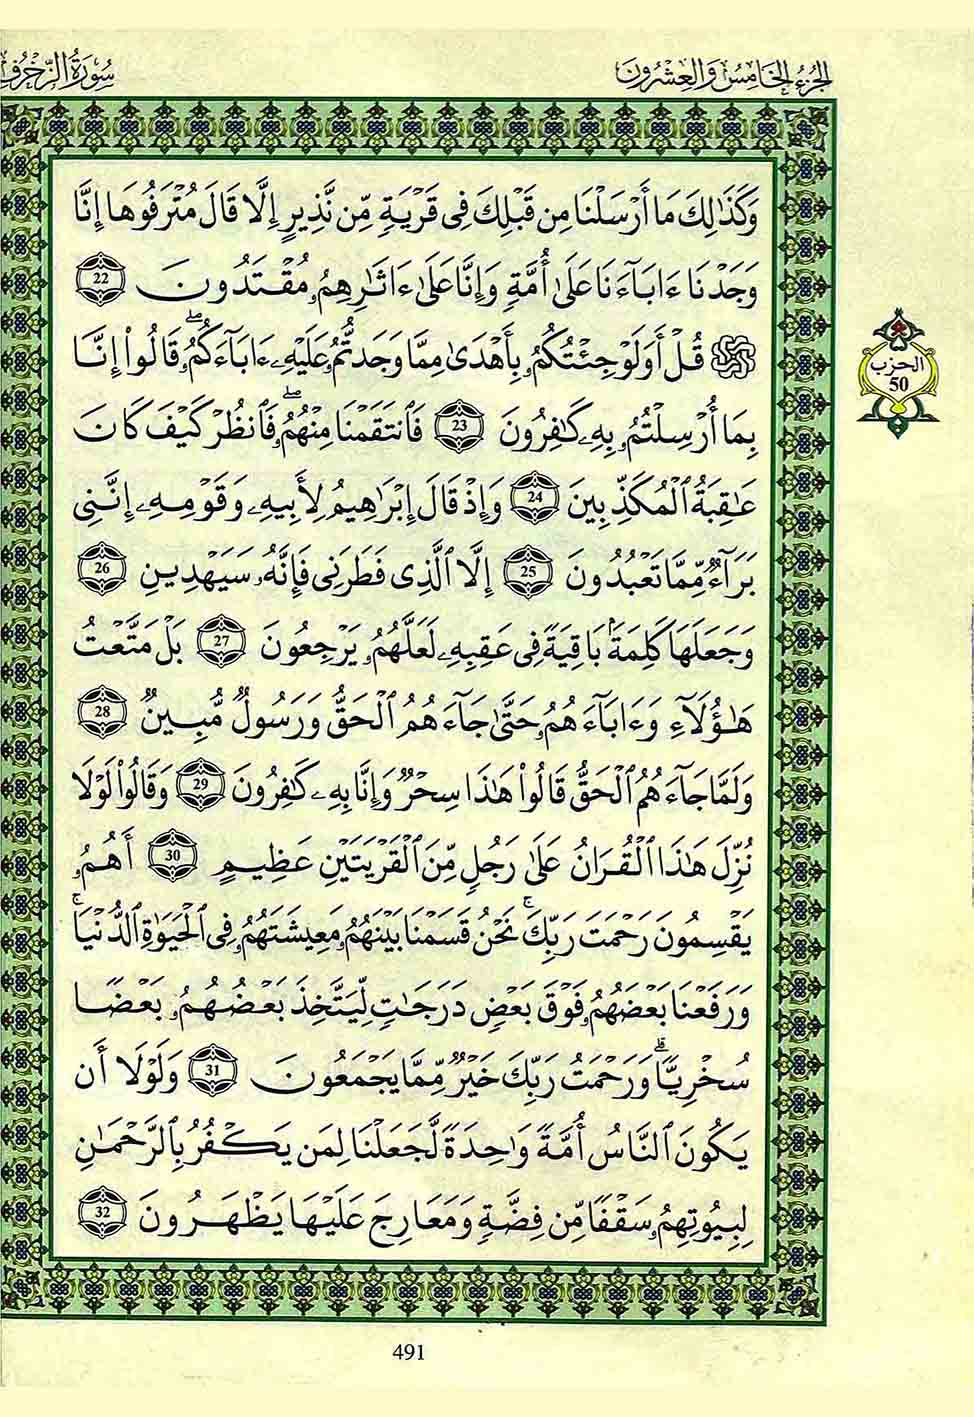 الجُزْءُ الخَامِسُ وَالعِشْرُونَ سُورَةُ الزُّخْرُفِ
وَكَذَٰلِكَ مَا أَرْسَلْنَا مِن قَبْلِكَ فِى قَرْيَةٍ مِّن نَّذِيرٍ إِلَّا قَالَ مُتْرَفُوهَا إِنَّا
وَجَدْنَا ءَابَآءَنَا عَلَىٰ أُمَّةٍ وَإِنَّا عَلَىٰ ءَاثَٰرِهِمُۥ مُقْتَدُونَ 22
۞ قُلْ أَوَلَوْ جِئْتُكُمُۥ بِأَهْدَىٰ مِمَّا وَجَدتُّمُۥ عَلَيْهِۦ ءَابَآءَكُمُۥۖ قَالُواْ إِنَّا
بِمَا أُرْسِلْتُمُۥ بِهِۦ كَٰفِرُونَ 23 فَٱنتَقَمْنَا مِنْهُمُۥۖ فَٱنظُرْ كَيْفَ كَانَ
عَٰقِبَةُ ٱلْمُكَذِّبِينَ 24 وَإِذْ قَالَ إِبْرَٰهِيمُ لِأَبِيهِۦ وَقَوْمِهِۦ إِنَّنِى
بَرَآءٌ مِّمَّا تَعْبُدُونَ 25 إِلَّا ٱلَّذِى فَطَرَنِى فَإِنَّهُۥ سَيَهْدِينِ 26
وَجَعَلَهَا كَلِمَةً بَاقِيَةً فِى عَقِبِهِۦ لَعَلَّهُمُۥ يَرْجِعُونَ 27 بَلْ مَتَّعْتُ
هَٰؤُلَآءِ وَءَابَآءَهُمُۥ حَتَّىٰ جَآءَهُمُ ٱلْحَقُّ وَرَسُولٌ مُّبِينٌ 28
وَلَمَّا جَآءَهُمُ ٱلْحَقُّ قَالُواْ هَٰذَا سِحْرٌ وَإِنَّا بِهِۦ كَٰفِرُونَ 29 وَقَالُواْ لَوْلَا
نُزِّلَ هَٰذَا ٱلْقُرَانُ عَلَىٰ رَجُلٍ مِّنَ ٱلْقَرْيَتَيْنِ عَظِيمٍ 30 أَهُمُۥ
يَقْسِمُونَ رَحْمَتَ رَبِّكَۚ نَحْنُ قَسَمْنَا بَيْنَهُمُۥ مَعِيشَتَهُمُۥ فِى ٱلْحَيَوٰةِ ٱلدُّنْيَاۚ
وَرَفَعْنَا بَعْضَهُمُۥ فَوْقَ بَعْضٍ دَرَجَٰتٍ لِّيَتَّخِذَ بَعْضُهُمُۥ بَعْضًا
سُخْرِيًّاۗ وَرَحْمَتُ رَبِّكَ خَيْرٌ مِّمَّا يَجْمَعُونَ 31 وَلَوْلَا أَن
يَكُونَ ٱلنَّاسُ أُمَّةً وَٰحِدَةً لَّجَعَلْنَا لِمَن يَكْفُرُ بِٱلرَّحْمَٰنِ
لِبِيُوتِهِمُۥ سَقْفًا مِّن فِضَّةٍ وَمَعَارِجَ عَلَيْهَا يَظْهَرُونَ 32
الحزب
50
491